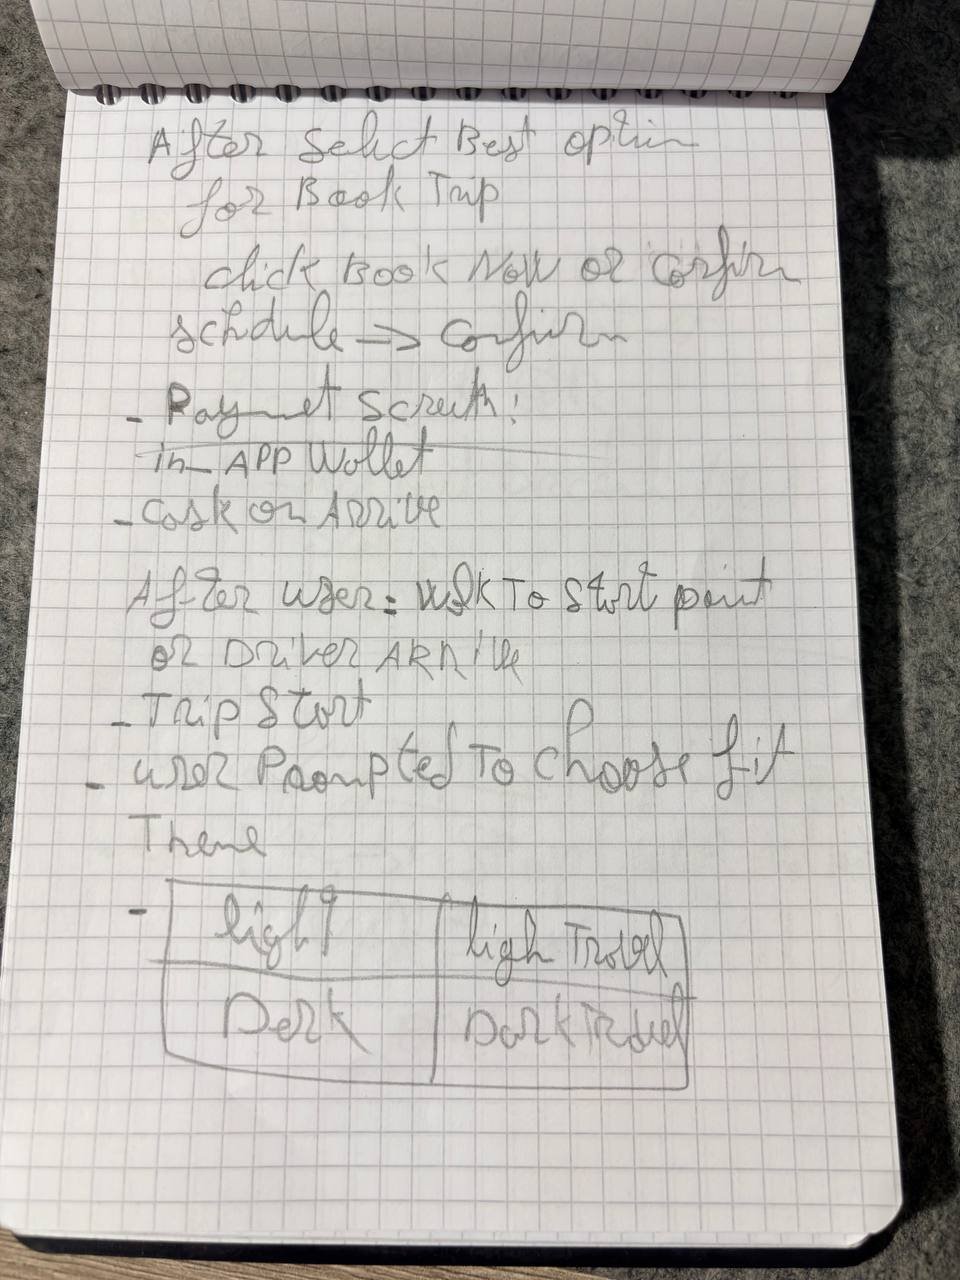 After Select Best option
for Book Trip
click Book Now or Confirm
schdule => Confirm
- Paymet Screeth:
in APP Wollet
- Cash on Arrive
After user: walk To Start point
or Driver ARRive
- Trip Start
- user Prompted To choose fit
Theme
- light | ligh Travel
Dark | Dark Travel